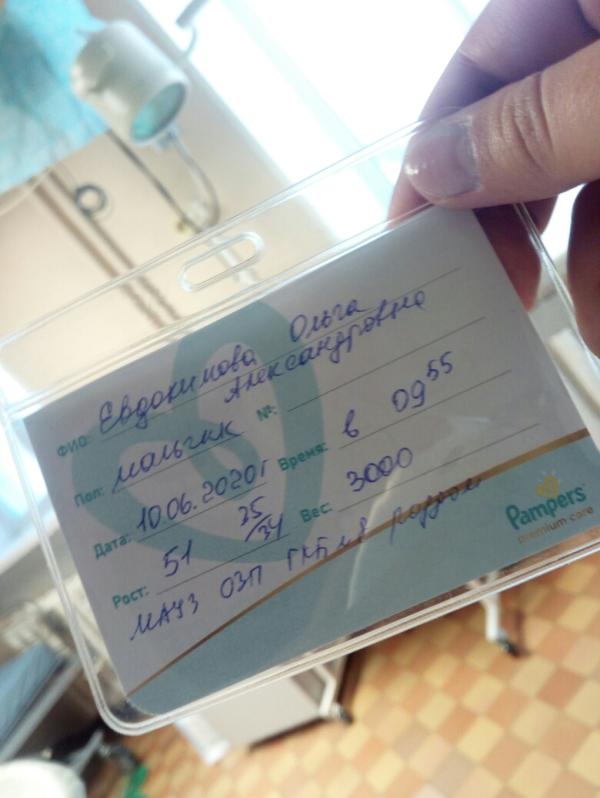 ФИО: Евдокимова Ольга
Александровна
Пол: мальчик №:
Дата: 10.06.2020г Время: в 09 55
Рост: 51 35/34 Вес: 3000
МАУЗ ОЗП ГКБ №8 роддом
Pampers
premium care